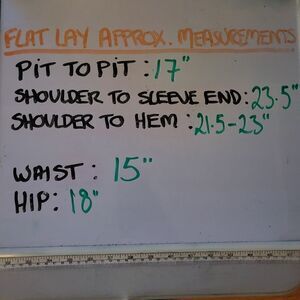 FLAT LAY APPROX. MEASUREMENTS
PIT TO PIT : 17"
SHOULDER TO SLEEVE END : 23.5"
SHOULDER TO HEM : 21.5-23"
WAIST : 15"
HIP : 18"